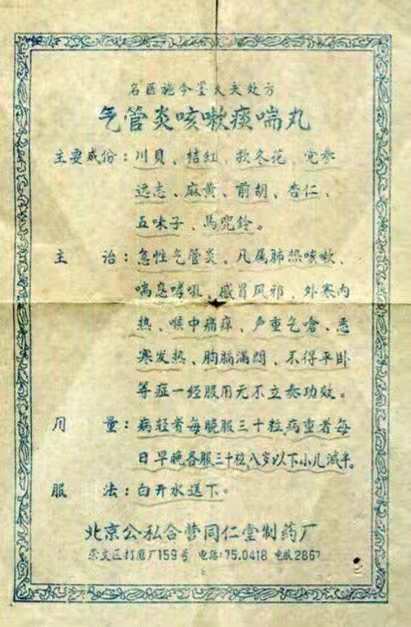 名医施今墨大夫处方
气管炎咳嗽痰喘丸
主要成份：川貝、桔紅、款冬花、党参
远志、麻黄、前胡、杏仁、
五味子、馬兜鈴。
主治：急性气管炎、凡属肺热咳嗽、
喘息哮吼、感冒风邪、外寒内
热、喉中痛痒、声重气仓、恶
寒发热、胸膈滿悶、不得平卧
等症一經服用无不立奏功效。
用量：病轻者每晚服三十粒病重者每
日早晚各服三十粒八岁以下小儿減半。
服法：白开水送下。
北京公私合营同仁堂制药厂
崇文区打磨厂159号 电話：75.0418 电报2867